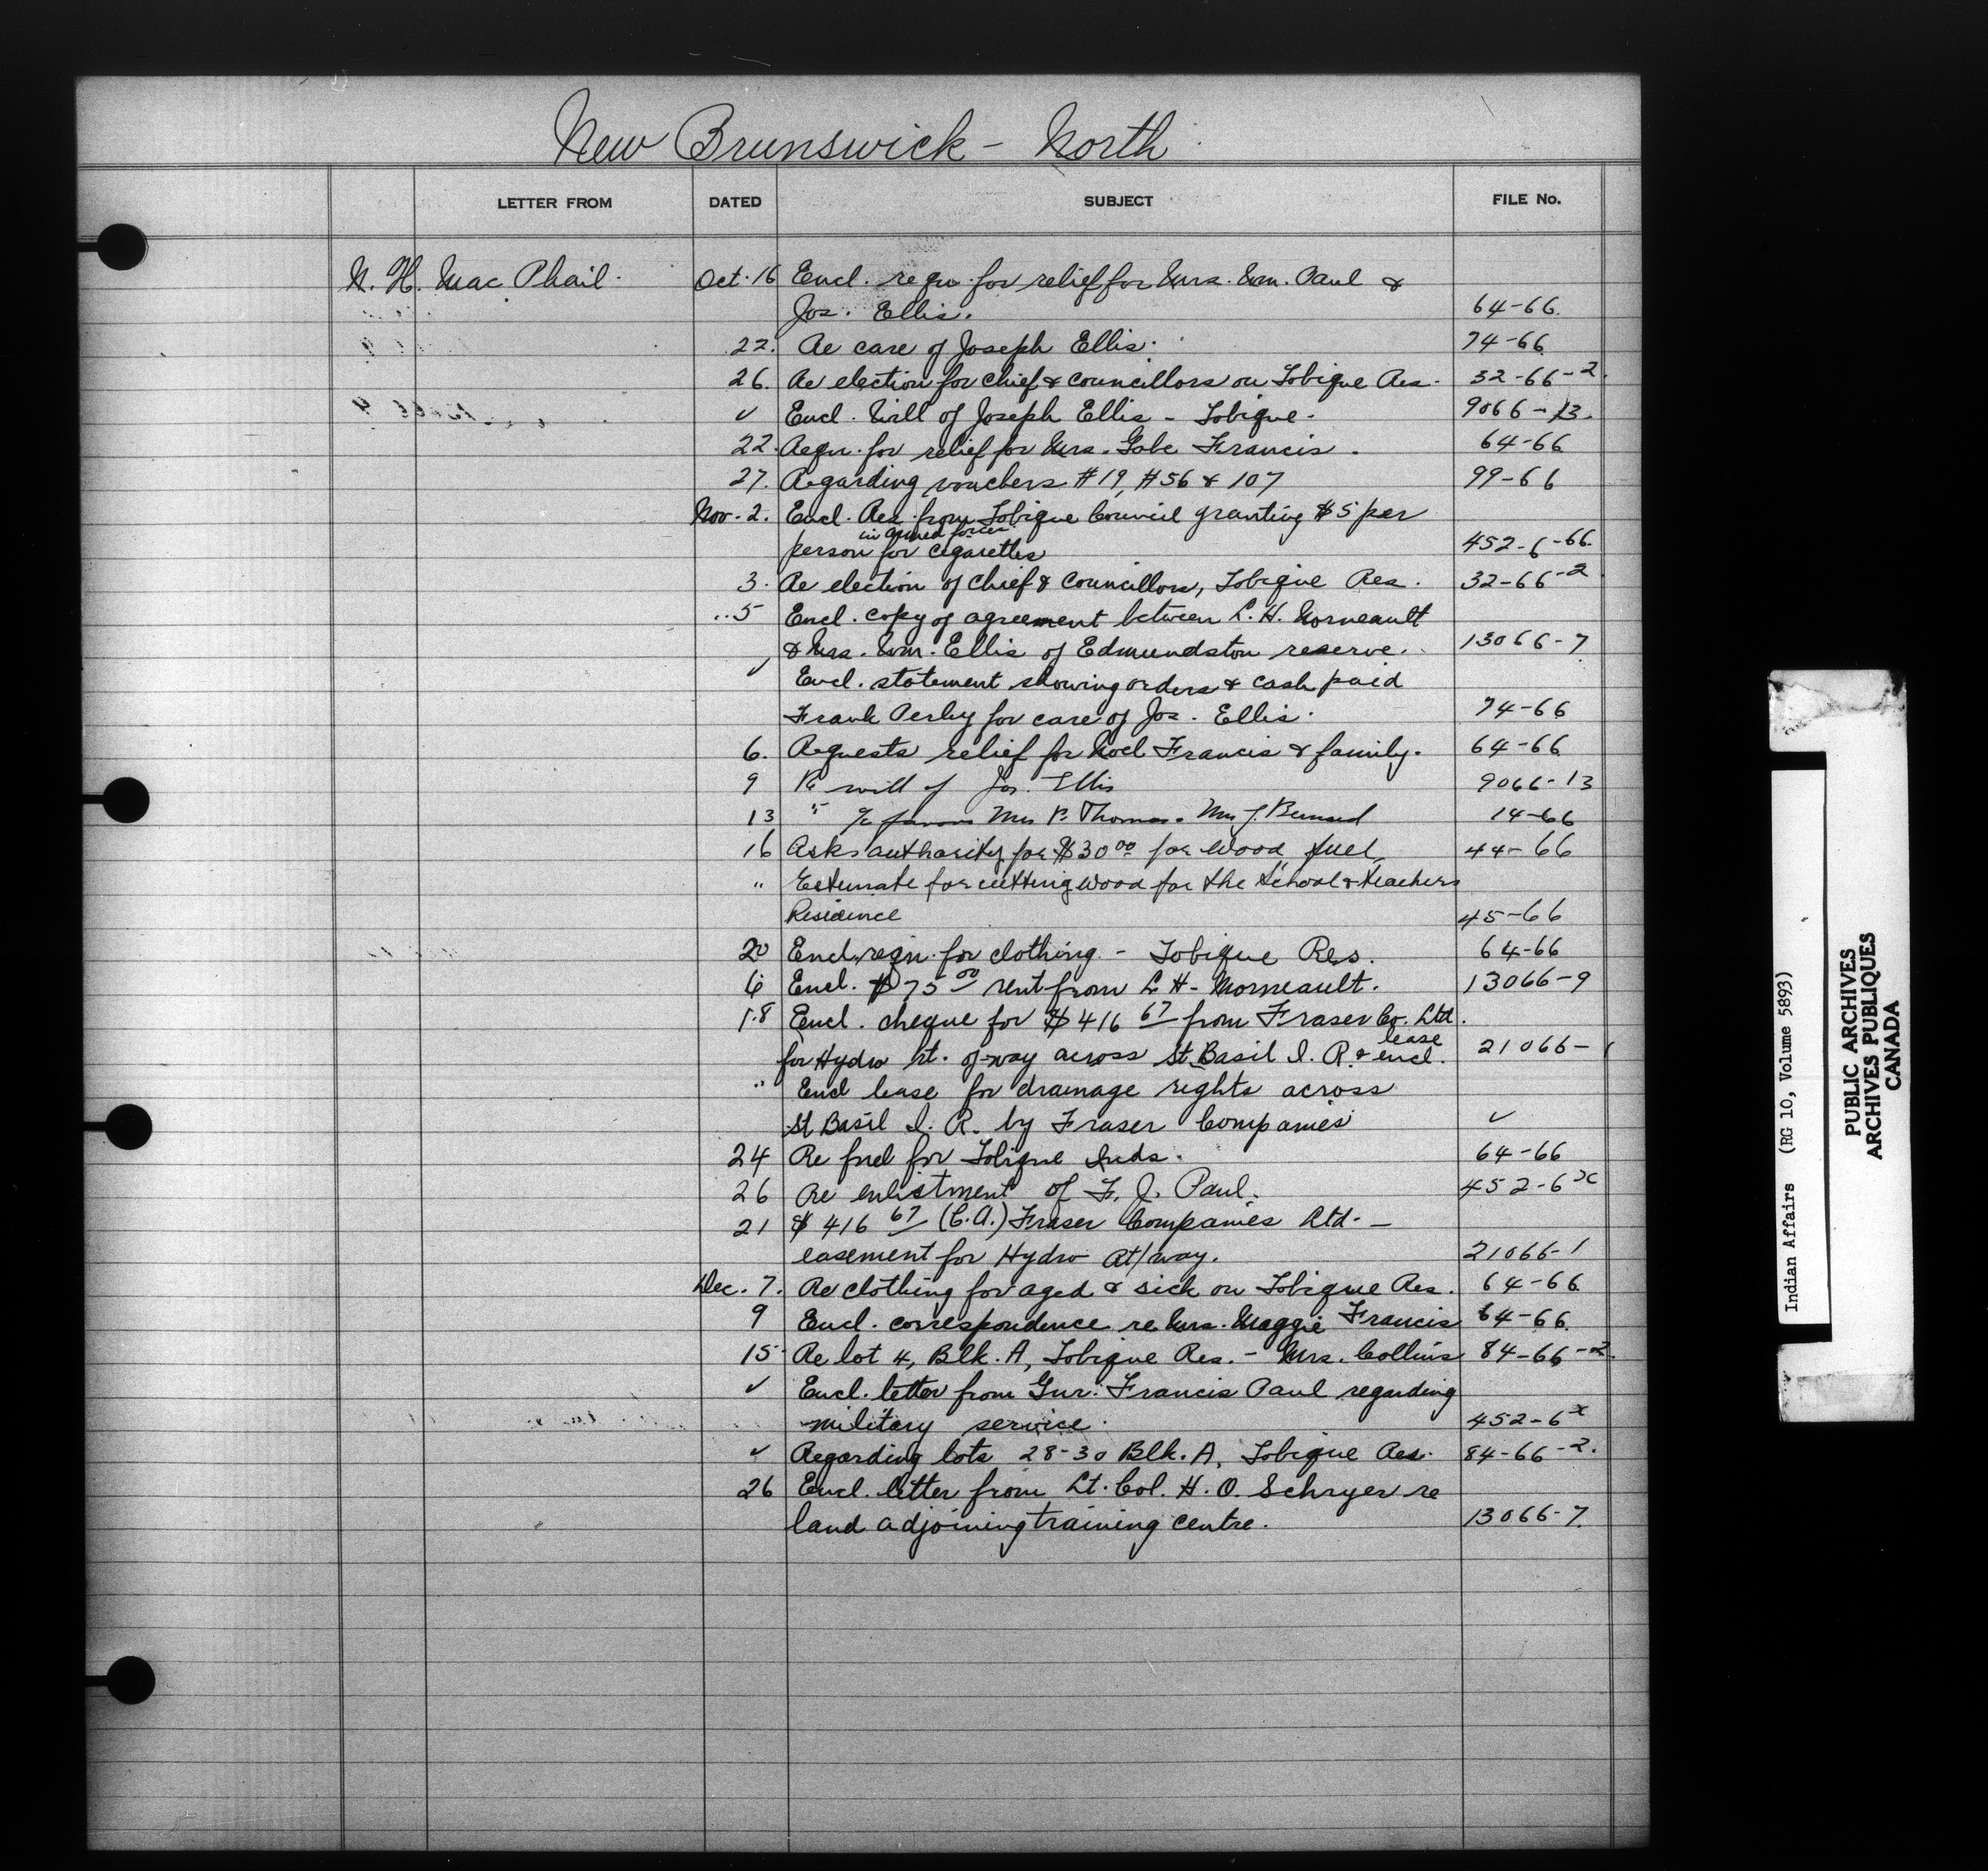 New Brunswick - North
LETTER FROM DATED SUBJECT FILE No.
N. H. Mac Phail. Oct. 16 Encl. reqn. for relief for Mrs. Wm. Paul &
Jos. Ellis. 64-66.
22. Re care of Joseph Ellis. 74-66
26. Re election for chief & councillors on Tobique Res. 32-66-2.
✓ Encl. Will of Joseph Ellis - Tobique. 9066-13.
22. Reqn. for relief for Mrs. Gabe Francis. 64-66
27. Regarding vouchers #19, #56 & 107 99-66
Nov. 2. Encl. Res. from Tobique Council granting $5 per
in armed forces
person for cigarettes 452-6-66.
3. Re election of chief & councillors, Tobique Res. 32-66-2
..5 Encl. copy of agreement between L. H. Morneault
& Mrs. Wm. Ellis of Edmundston reserve. 13066-7
✓ Encl. statement showing orders & cash paid
Frank Perley for care of Jos. Ellis. 74-66
6. Requests relief for Noel Francis & family. 64-66
9 Re will of Jos. Ellis 9066-13
13 " Mrs P. Thomas. Mrs J. Bernard 14-66
16 Asks authority for $30 00 for wood fuel 44-66
" Estimate for cutting wood for the School & teachers
Residence 45-66
20 Encl. reqn. for clothing - Tobique Res. 64-66
6 Encl. $75 00 rent from L. H. Morneault. 13066-9
18 Encl. cheque for $416 67 from Fraser Co. Ltd.
lease
for Hydro rt. of-way across St. Basil I. R. & encl. 21066-1
" Encl lease for drainage rights across
St Basil I. R. by Fraser Companies ✓
24 Re fuel for Tobique Inds. 64-66
26 Re enlistment of F. J. Paul. 452-6x
21 $416 67 (C.A.) Fraser Companies Ltd. -
easement for Hydro Rt/way. 21066-1
Dec. 7. Re clothing for aged & sick on Tobique Res. 64-66
9 Encl. correspondence re Mrs. Maggie Francis 64-66
15 Re lot 4, Blk. A, Tobique Res. - Mrs. Collins 84-66-2.
✓ Encl. letter from Gnr. Francis Paul regarding
military service. 452-6x
✓ Regarding lots 28-30 Blk. A, Tobique Res. 84-66-2.
26 Encl. letter from Lt. Col. H. O. Schryer re
land adjoining training centre. 13066-7.
Indian Affairs (RG 10, Volume 5893)
PUBLIC ARCHIVES
ARCHIVES PUBLIQUES
CANADA